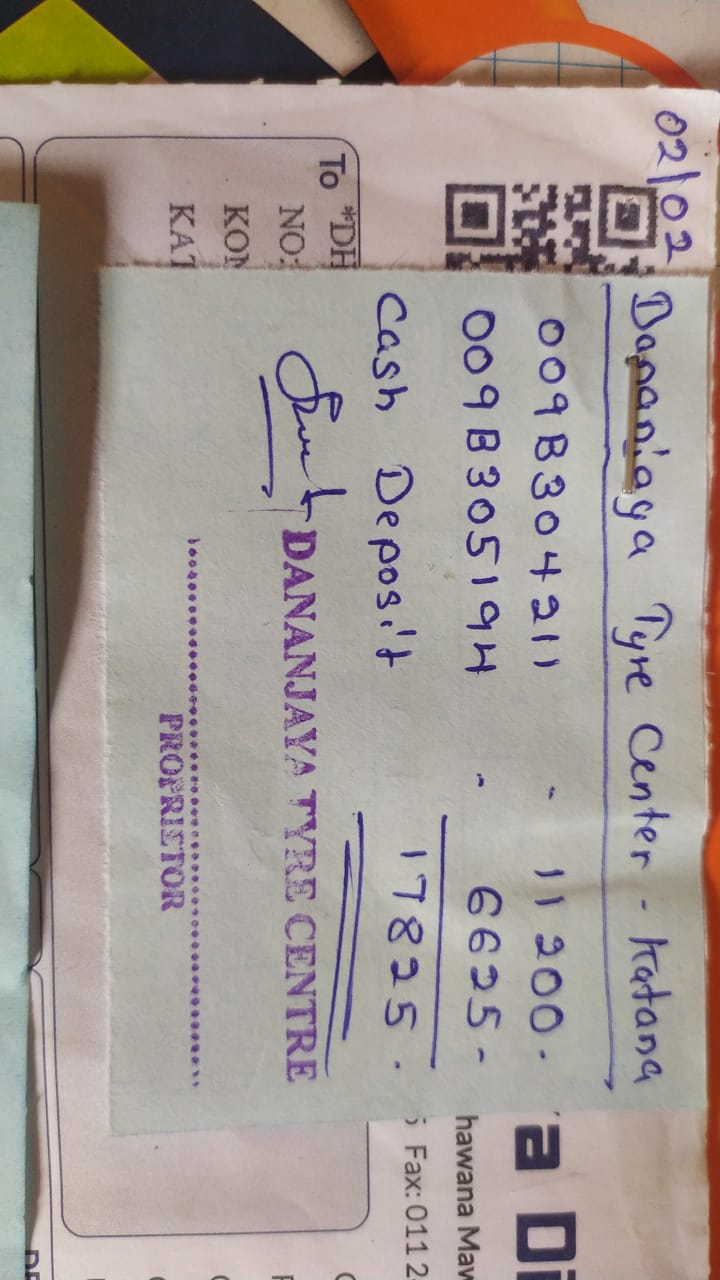 02/02
Dananjaya Tyre Center - Katana
009B304211 - 11200.
009B305194 - 6625-
Cash Deposit 17825.
DANANJAYA TYRE CENTRE
PROPRIETOR
a Di
hawana Maw
Fax: 011 2
To *DH
NO:
KON
KAT